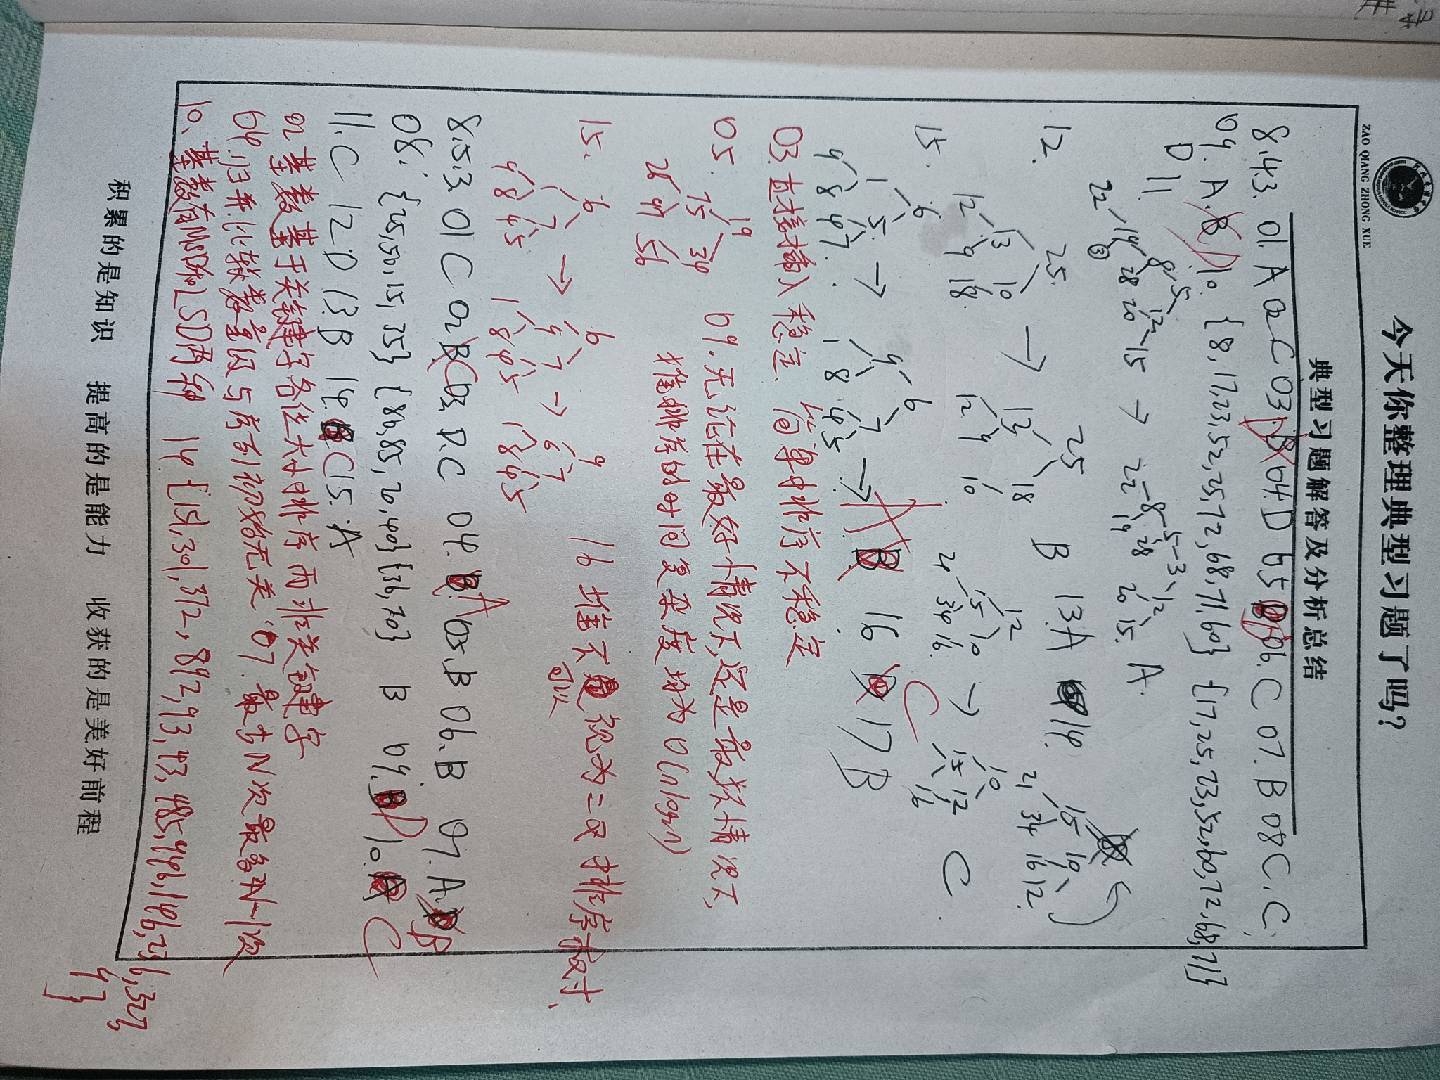 今天你整理典型习题了吗?
ZAO QIANG ZHONG XUE
典型习题解答及分析总结
8.4.3. 01. A 02 C 03 B D 04. D 05 B 06. C 07. B 08 C. C
09. A. B D 10. {8,17,23,52,25,72,68,71,60} {17,25,23,52,60,72,68,71}
D 11. 5 8 12 19 28 20 15 22 ③ → 5 3 8 28 12 22 19 20 15. A.
12. 25. 13 10 12 9 18 → 25 13 18 12 9 10 B 13. A 14. 15 10 21 34 16 12
12 15 10 21 34 16 → 10 15 12 16 C
15. 6 1 5 9 8 4 7 → 6 9 7 1 8 4 5 → A B 16 D C 17 B
03. 直接插入稳定. 简单排序不稳定
05. 19 75 34 26 97 56
09. 无论在最好情况下,还是最坏情况下,
堆排序的时间复杂度均为O(nlog₂n)
15. 6 1 7 9 8 4 5 → 6 9 7 1 8 4 5 → 9 6 7 1 8 4 5
16 堆不可以视为二叉排序树、
8.5.3. 01 C 02 B C 03. D. C 04. B. A 05. B 06. B 07. A. D B
08. {25,50,15,35} {80,85,20,40} {36,70} B 09. B D 10. A C
11. C 12 D 13. B 14. B C 15. A
02 基数基于关键字各位大小排序而非关键字
04. 归并比较数量级与序列初始无关 07. 最少N次最多2N-1次
10、基数有MSD和LSD两种 14 {151,301,372,892,93,43,485,946,146,236,327,
9}
积累的是知识 提高的是能力 收获的是美好前程